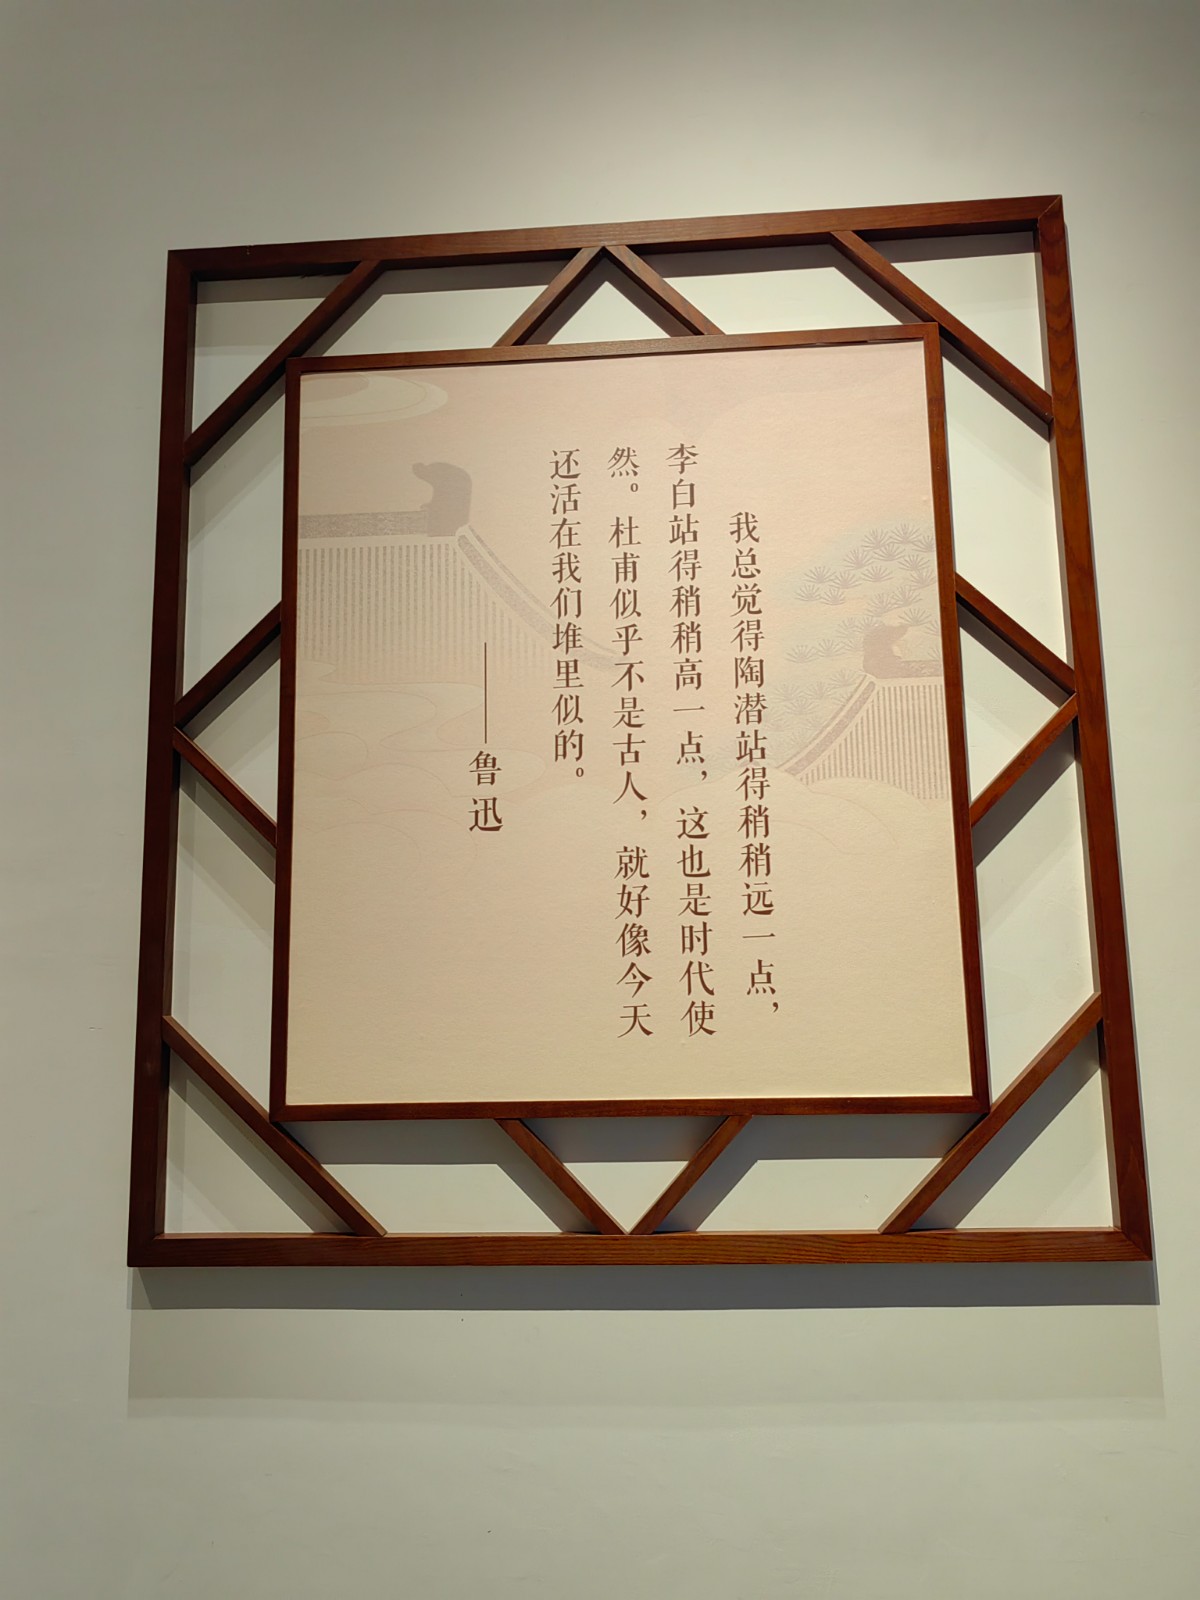 我总觉得陶潜站得稍稍远一点，
李白站得稍稍高一点，这也是时代使
然。杜甫似乎不是古人，就好像今天
还活在我们堆里似的。
——鲁迅